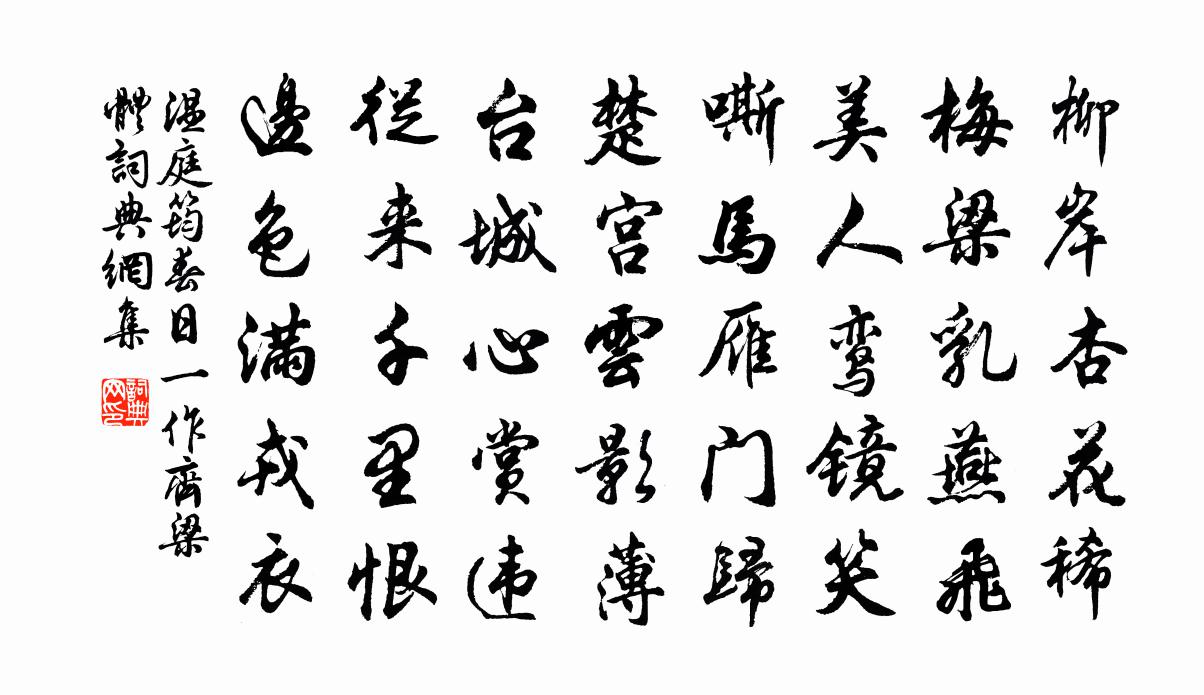 柳岸杏花稀
梅梁乳燕飛
美人鸾镜笑
嘶馬雁门歸
楚宫雲影薄
台城心赏违
從来千里恨
邊色满戎衣
温庭筠春日一作齊梁
體詞典網集
詞典网印